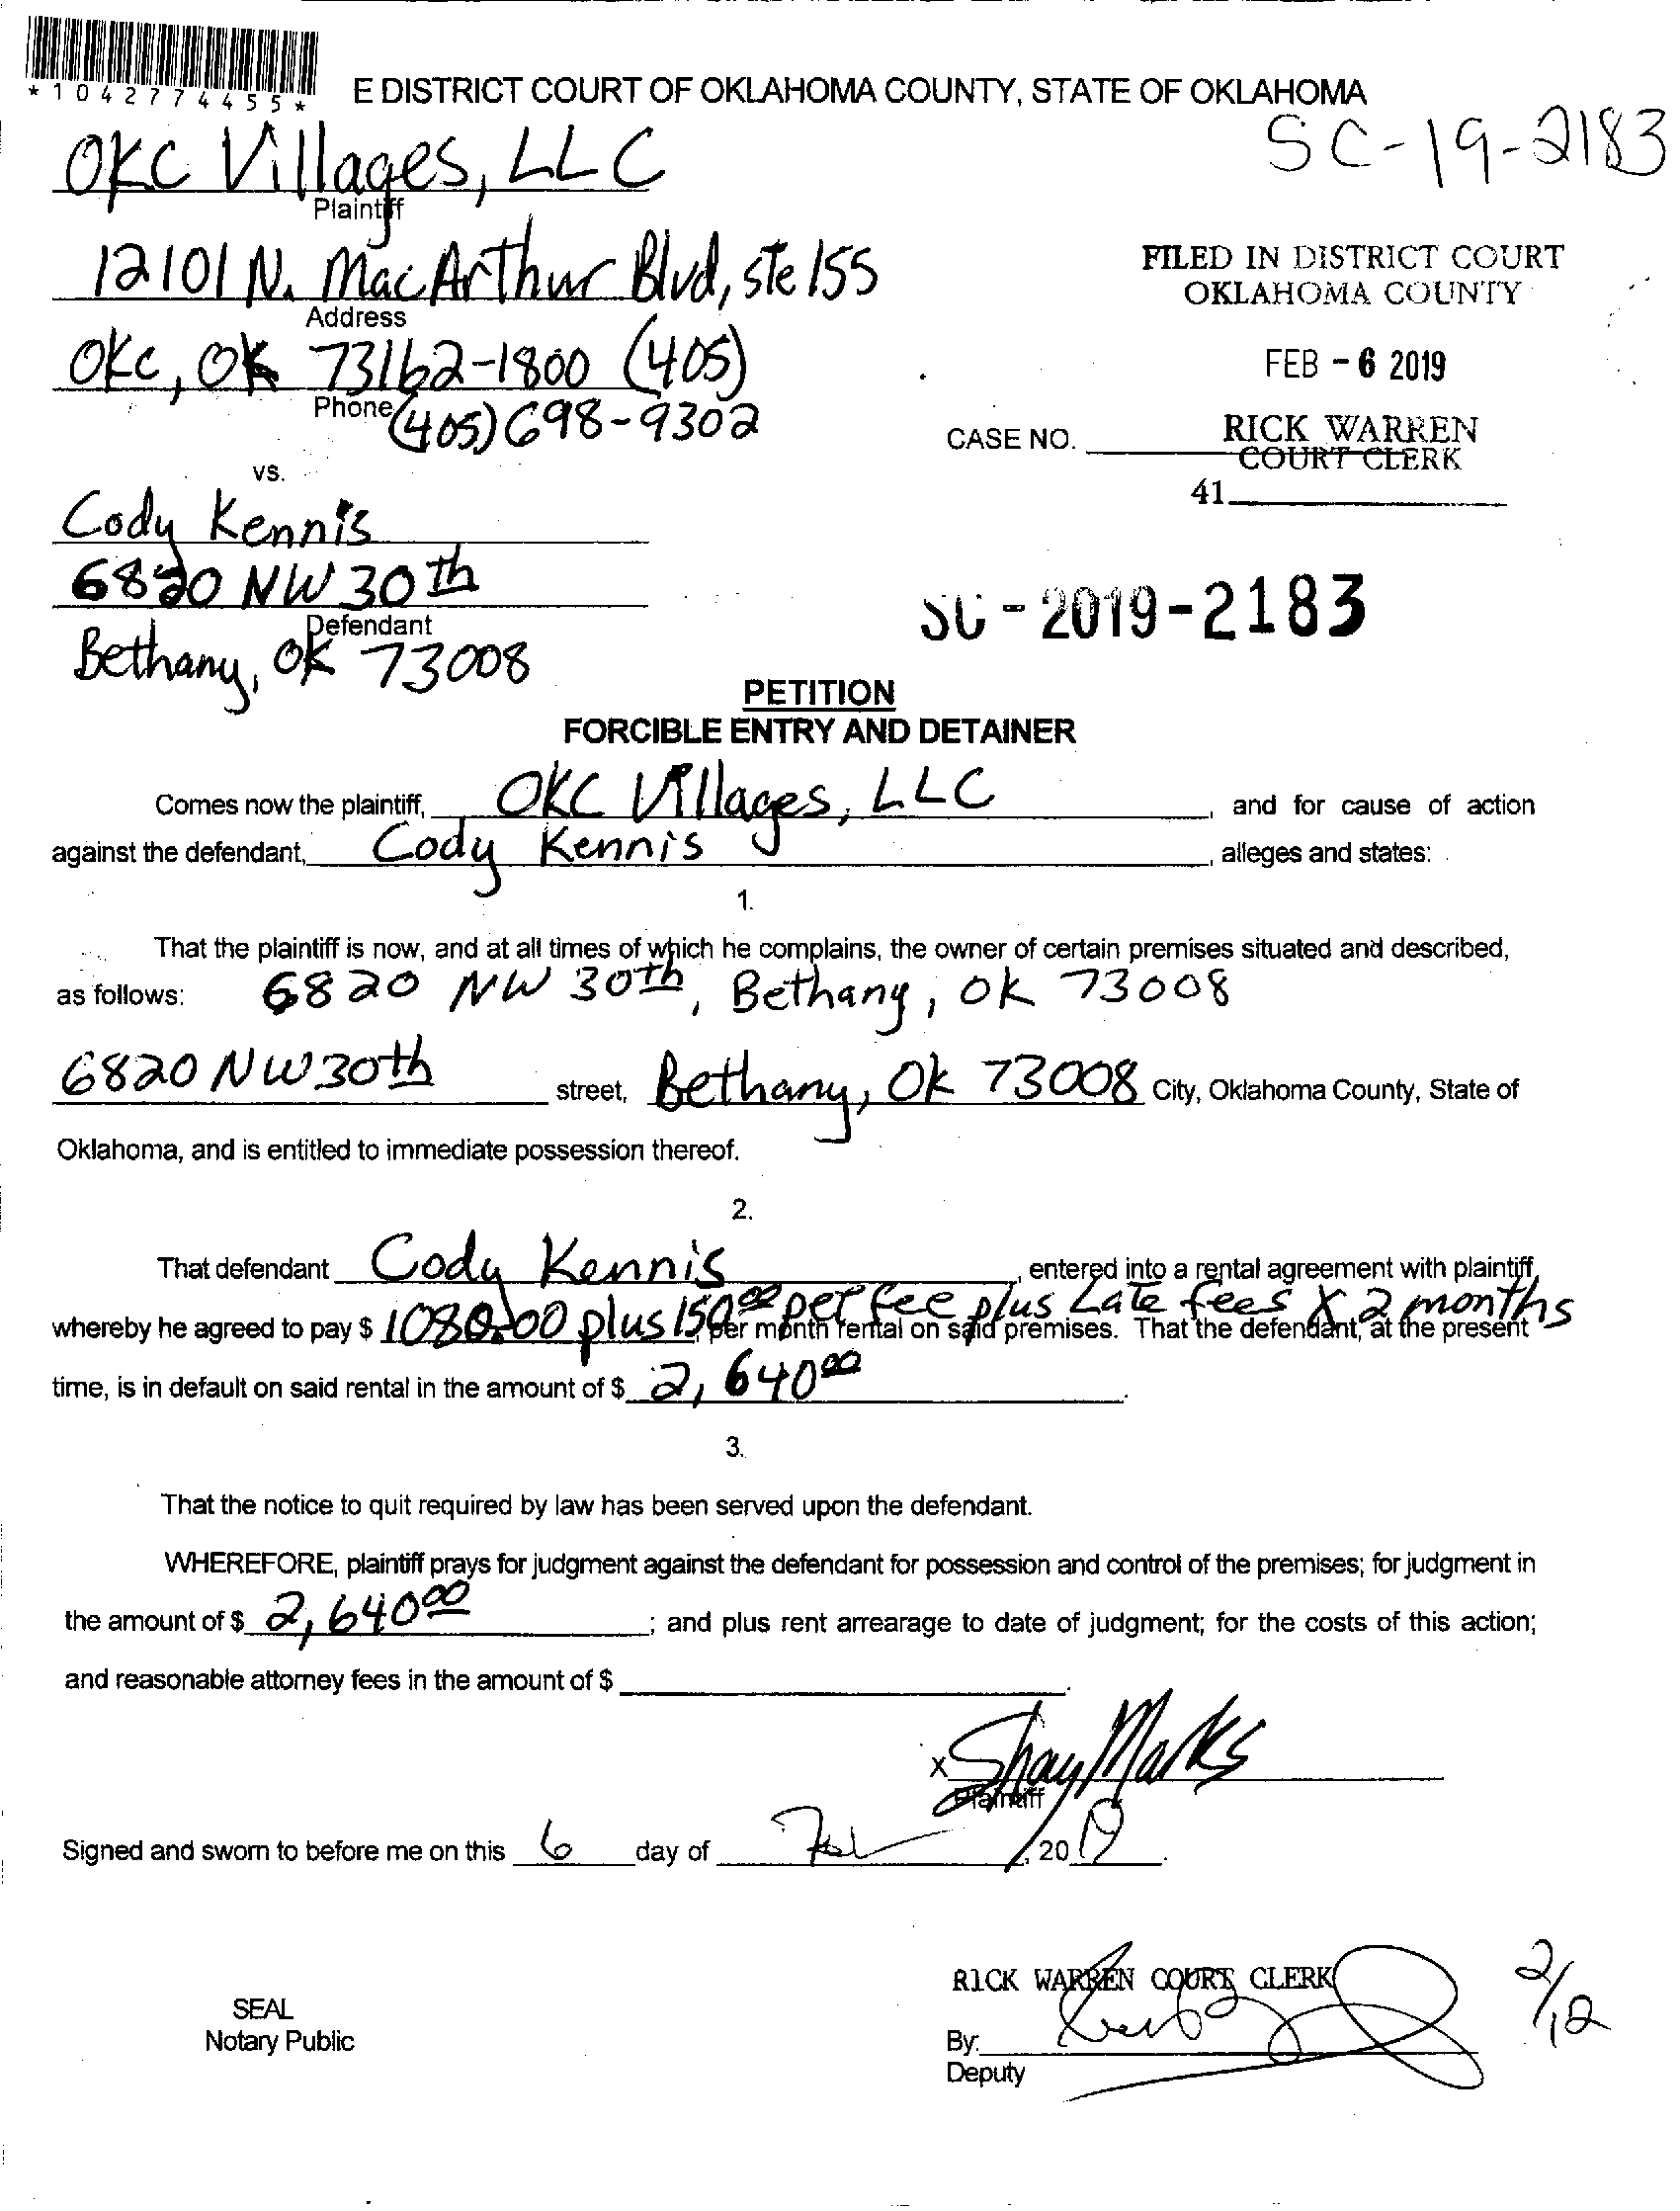 *1042774455*
E DISTRICT COURT OF OKLAHOMA COUNTY, STATE OF OKLAHOMA
SC-19-2183
OKC Villages, LLC
Plaintiff
12101 N. MacArthur Blvd, ste 155
Address
OKC, OK 73162-1800 (405)
Phone (405) 698-9302
FILED IN DISTRICT COURT
OKLAHOMA COUNTY
FEB - 6 2019
RICK WARREN
COURT CLERK
41
CASE NO.
vs.
Cody Kennis
6820 NW 30th
Defendant
Bethany, OK 73008
SC-2019-2183
PETITION
FORCIBLE ENTRY AND DETAINER
Comes now the plaintiff, OKC Villages, LLC, and for cause of action
against the defendant, Cody Kennis, alleges and states:
1.
That the plaintiff is now, and at all times of which he complains, the owner of certain premises situated and described,
as follows: 6820 NW 30th, Bethany, OK 73008
6820 NW 30th street, Bethany, OK 73008 City, Oklahoma County, State of
Oklahoma, and is entitled to immediate possession thereof.
2.
That defendant Cody Kennis, entered into a rental agreement with plaintiff,
whereby he agreed to pay $ 1080.00 plus 150.00 pet fee plus Late fees X 2 months per month rental on said premises. That the defendant, at the present
time, is in default on said rental in the amount of $ 2,640 00.
3.
That the notice to quit required by law has been served upon the defendant.
WHEREFORE, plaintiff prays for judgment against the defendant for possession and control of the premises; for judgment in
the amount of $ 2,640 00; and plus rent arrearage to date of judgment; for the costs of this action;
and reasonable attorney fees in the amount of $
x Shay Marks
Plaintiff
Signed and sworn to before me on this 6 day of Feb, 2019.
RICK WARREN COURT CLERK
2/12
SEAL
Notary Public
By:
Deputy